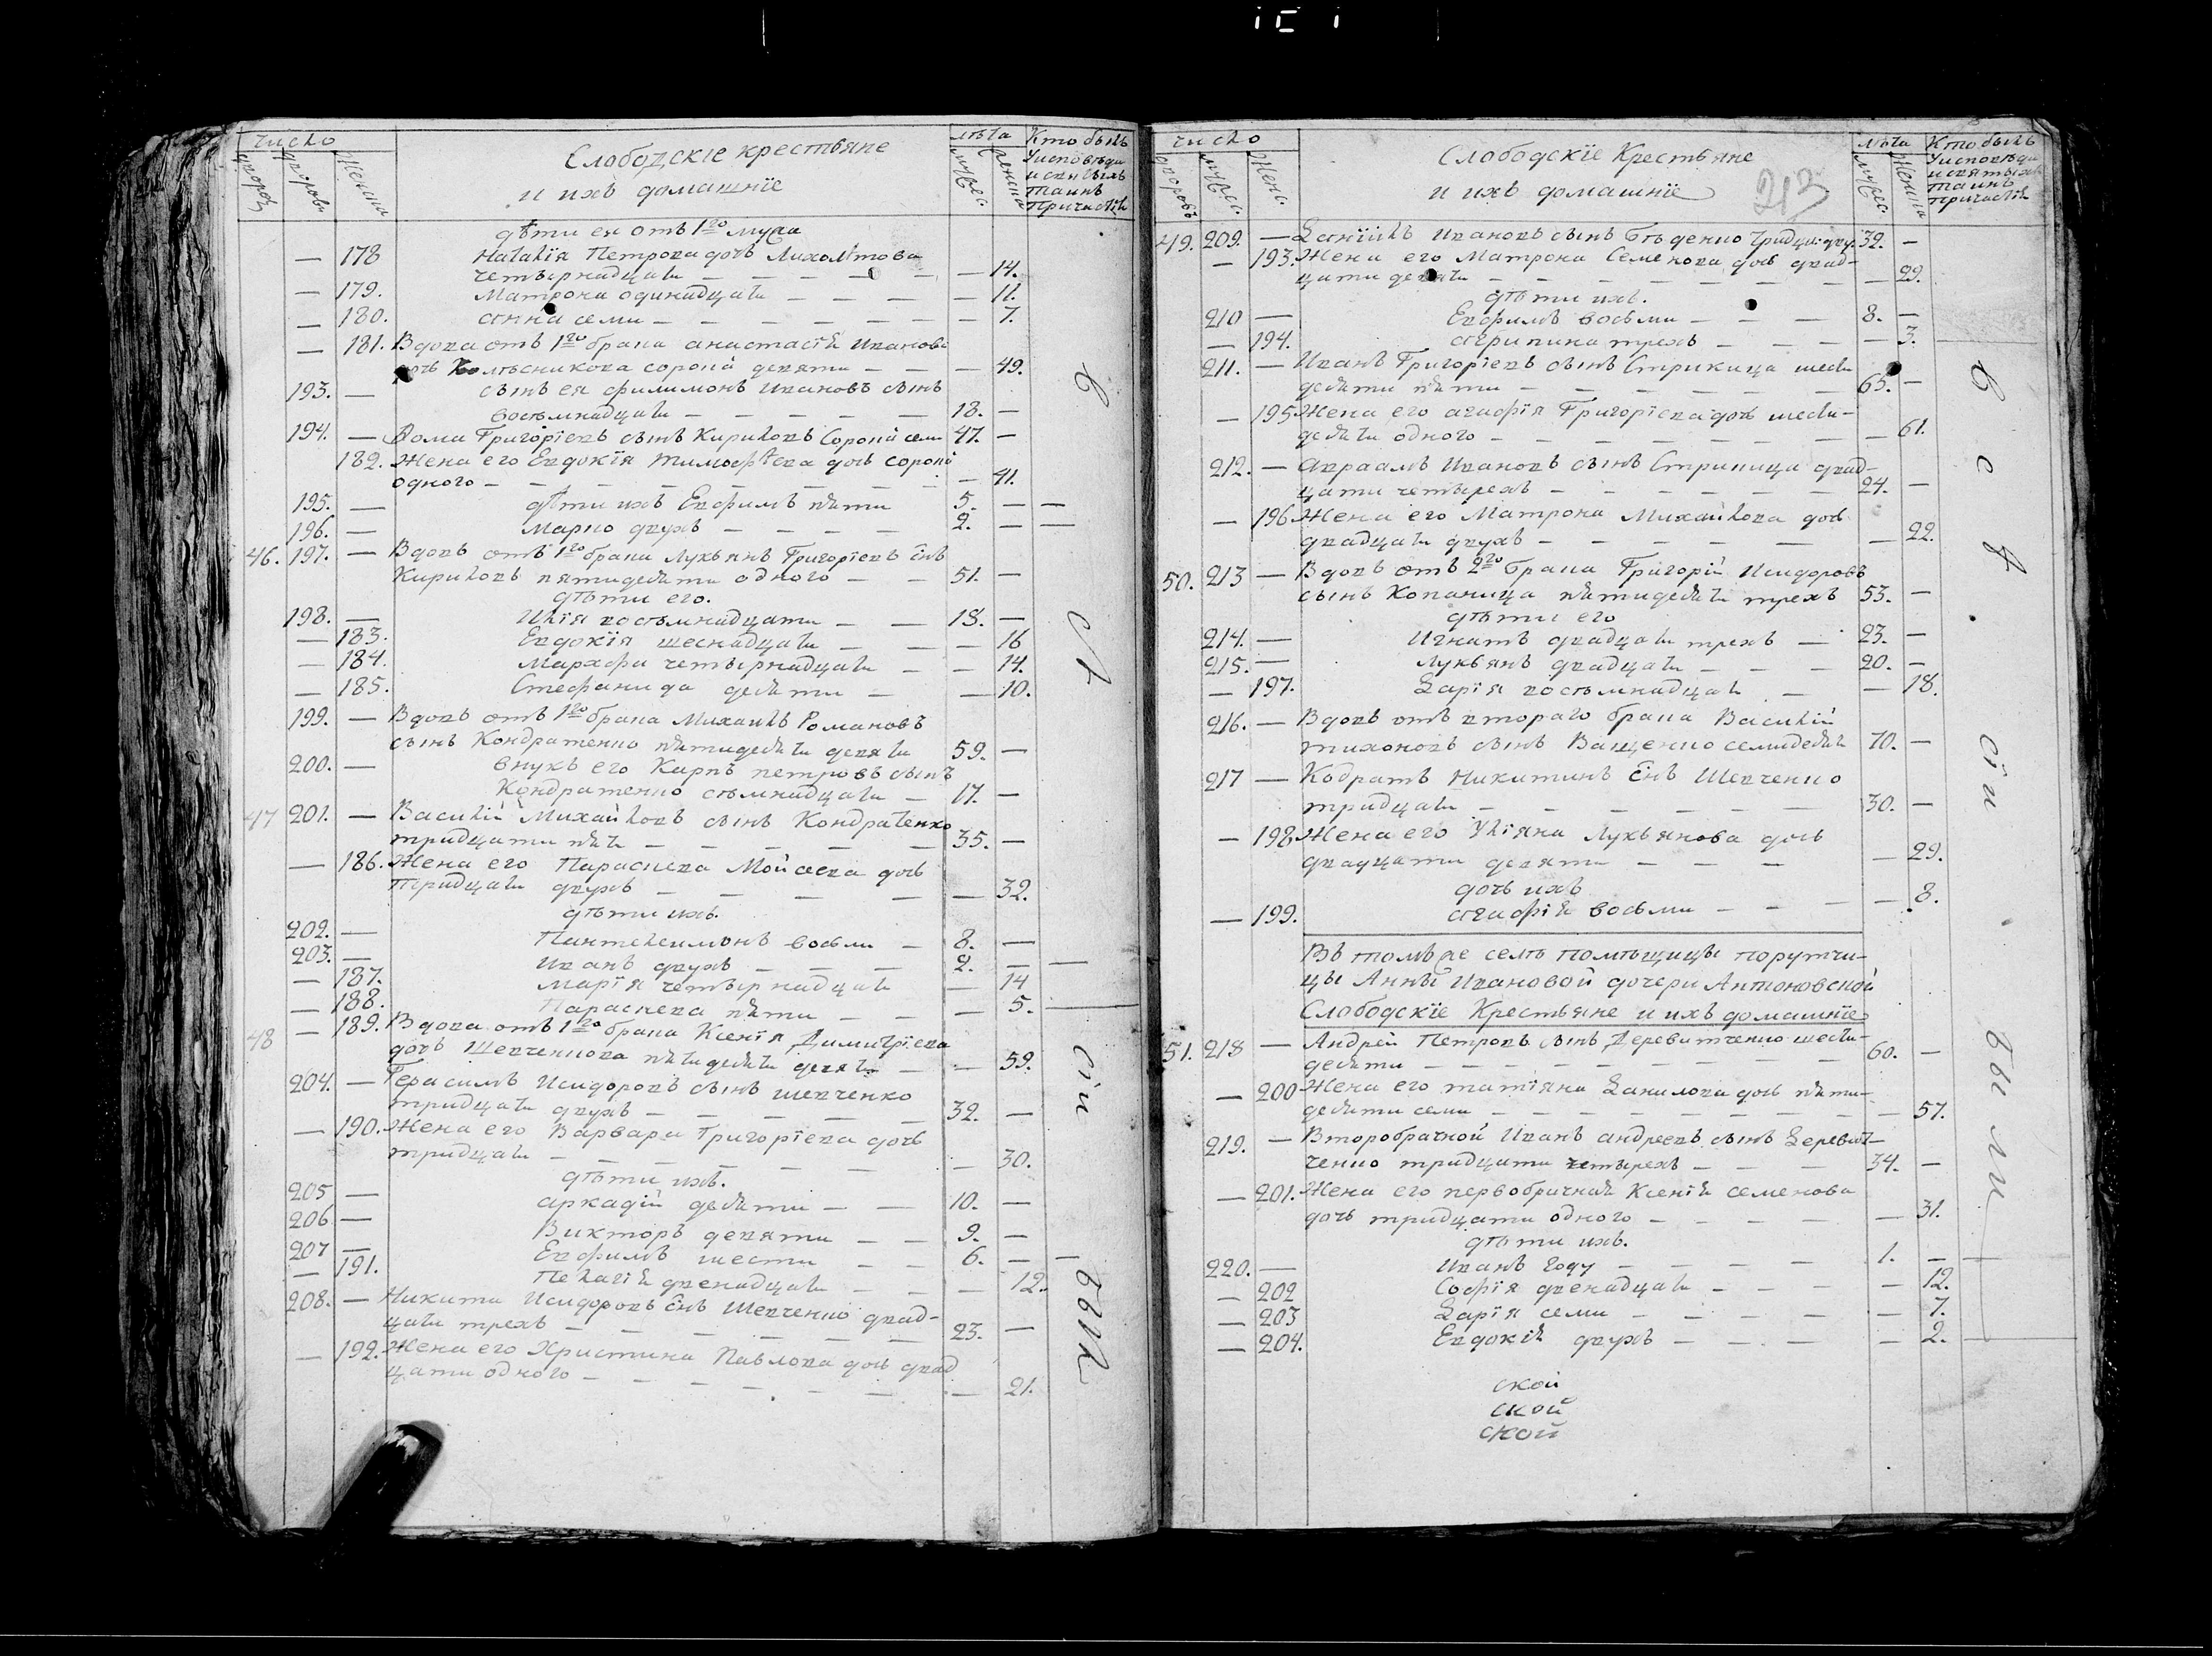 число
дворов
Слободскіе крестьяне
и ихъ домашніе
лѣта
мужес.
женска
Кто былъ
У исповѣди
и святыхъ
таинъ
Причастія
дѣти ея отъ 1го мужа
— 178 Наталія Петрова дочь
четырнадцати — — — — 14.
— 179. Матрона одинадцати — — — — 11.
— 180. Анна семи — — — — 7.
— 181. Вдова отъ 1го брака Анастасія Иванова
дочь Колѣсникова сорокъ девяти — — — 49.
193. — сынъ ея Филимонъ Ивановъ сынъ
восѣмнадцати — — — — 18. —
194. — Фома Григоріевъ сынъ Кириковъ сорокъ семи 47. —
182. Жена его Евдокія Тимофѣева дочь сорокъ
одного — — — — 41.
195. — дѣти ихъ Евфимъ пяти 5. — —
196. — Марко двухъ — — — — 2. — —
46. 197. — Вдовъ отъ 1го брака Лукьянъ Григоріевъ снъ
Кириковъ пятидесяти одного — — 51. —
дѣти его.
198. — Илія восѣмнадцати — — 18. —
— 183. Евдокія шеснадцати — — — 16
— 184. Марфа четырнадцати — — 14.
— 185. Стефанида десяти — — 10.
199. — Вдовъ отъ 1го брака Михаилъ Романовъ
сынъ Кондратенко пятидесяти девяти 59. —
200. — внукъ его Карпъ Петровъ сынъ
Кондратенко сѣмнадцати — 17. —
47 201. — Василій Михайловъ сынъ Кондратенко
тридцати пяти — — — — — 35. —
— 186. Жена его Параскева Мойсеева дочь
тридцати двухъ — — — — — 32.
дѣти ихъ.
202. — Пантелеимонъ восьми — 8. —
203. — Иванъ двухъ — — — 2. — —
— 187. Марія четырнадцати — 14
— 188. Параскева пяти — — — 5. —
48 — 189. Вдова отъ 1го брака Ксенія Димитріева
дочь Шевченкова пятидесяти девяти — — 59.
204. — Герасимъ Исидоровъ сынъ Шевченко
тридцати двухъ — — — — 32. —
— 190. Жена его Варвара Григоріева дочь
тридцати — — — — — — 30.
дѣти ихъ.
205 — Аркадій десяти — — 10. —
206 — Викторъ девяти — — 9. —
207 — Евфимъ шести — — 6. — —
— 191. Пелагія двенадцати — — — 12.
208. — Никита Исидоровъ снъ Шевченко двад-
цати трехъ — — — — — — 23. —
— 192. Жена его Христина Павлова дочь двад
цати одного — — — — — — — 21.
всѣ
сіи
были
число
дворовъ
мужес.
женс.
Слободскіе Крестьяне
и ихъ домашніе
213
лѣта
мужес.
женска
Кто былъ
У исповѣди
и святыхъ
таинъ
причастія
49. 209. — Даніилъ Ивановъ сынъ Бѣденко тридцати дву. 32. —
— 193. Жена его Матрона Семенова дочь двад-
цати девяти — — — — — — — 29.
дѣти ихъ.
210 — Евфимъ восьми — — — 8. —
— 194. Агрипина трехъ — — — — 3. —
211. — Иванъ Григоріевъ сынъ Стрикица шесть
десяти пяти — — — — — 65. —
— 195 Жена его Агафія Григоріева дочь шесть-
десяти одного — — — — — — 61.
212. — Авраамъ Ивановъ сынъ Стрикица двад-
цати четырехъ — — — — — — 24. —
— 196 Жена его Матрона Михайлова дочь
двадцати двухъ — — — — — — 22.
50. 213 — Вдовъ отъ 2го брака Григорій Исидоровъ
сынъ Копаница пятидесяти трехъ 53. —
дѣти его
214. — Игнатъ двадцати трехъ — 23. —
215. — Лукьянъ двадцати — — — 20. —
— 197. Дарія восѣмнадцати — — 18.
216. — Вдовъ отъ втораго брака Василій
Тихоновъ сынъ Ващенко семидесяти 70. —
217 — Кодратъ Никитинъ снъ Шевченко
тридцати — — — — — — 30. —
— 198. Жена его Уліяна Лукьянова дочь
двадцати девяти — — — — 29.
дочь ихъ
— 199. Агафія восьми — — — — 8.
Въ томъ же селѣ помѣщицы порутчи-
цы Анны Ивановой дочери Антоновской
Слободскіе Крестьяне и ихъ домашніе
51. 218 — Андрей Петровъ сынъ Деревитченко шесть-
десяти — — — — — — — 60. —
— 200 Жена его Татіяна Данилова дочь пяти-
десяти семи — — — — — — — — 57.
219. — Второбрачной Иванъ Андреевъ сынъ Деревит-
ченко тридцати четырехъ — — — 34. —
— 201. Жена его первобрачная Ксенія Семенова
дочь тридцати одного — — — — — 31.
дѣти ихъ.
220. — Иванъ году — — — — 1. — —
— 202 Софія двенадцати — — — — 12.
— 203 Дарія семи — — — — — 7.
— 204. Евдокія двухъ — — — — 2. —
ской
ской
ской
всѣ
сіи
были